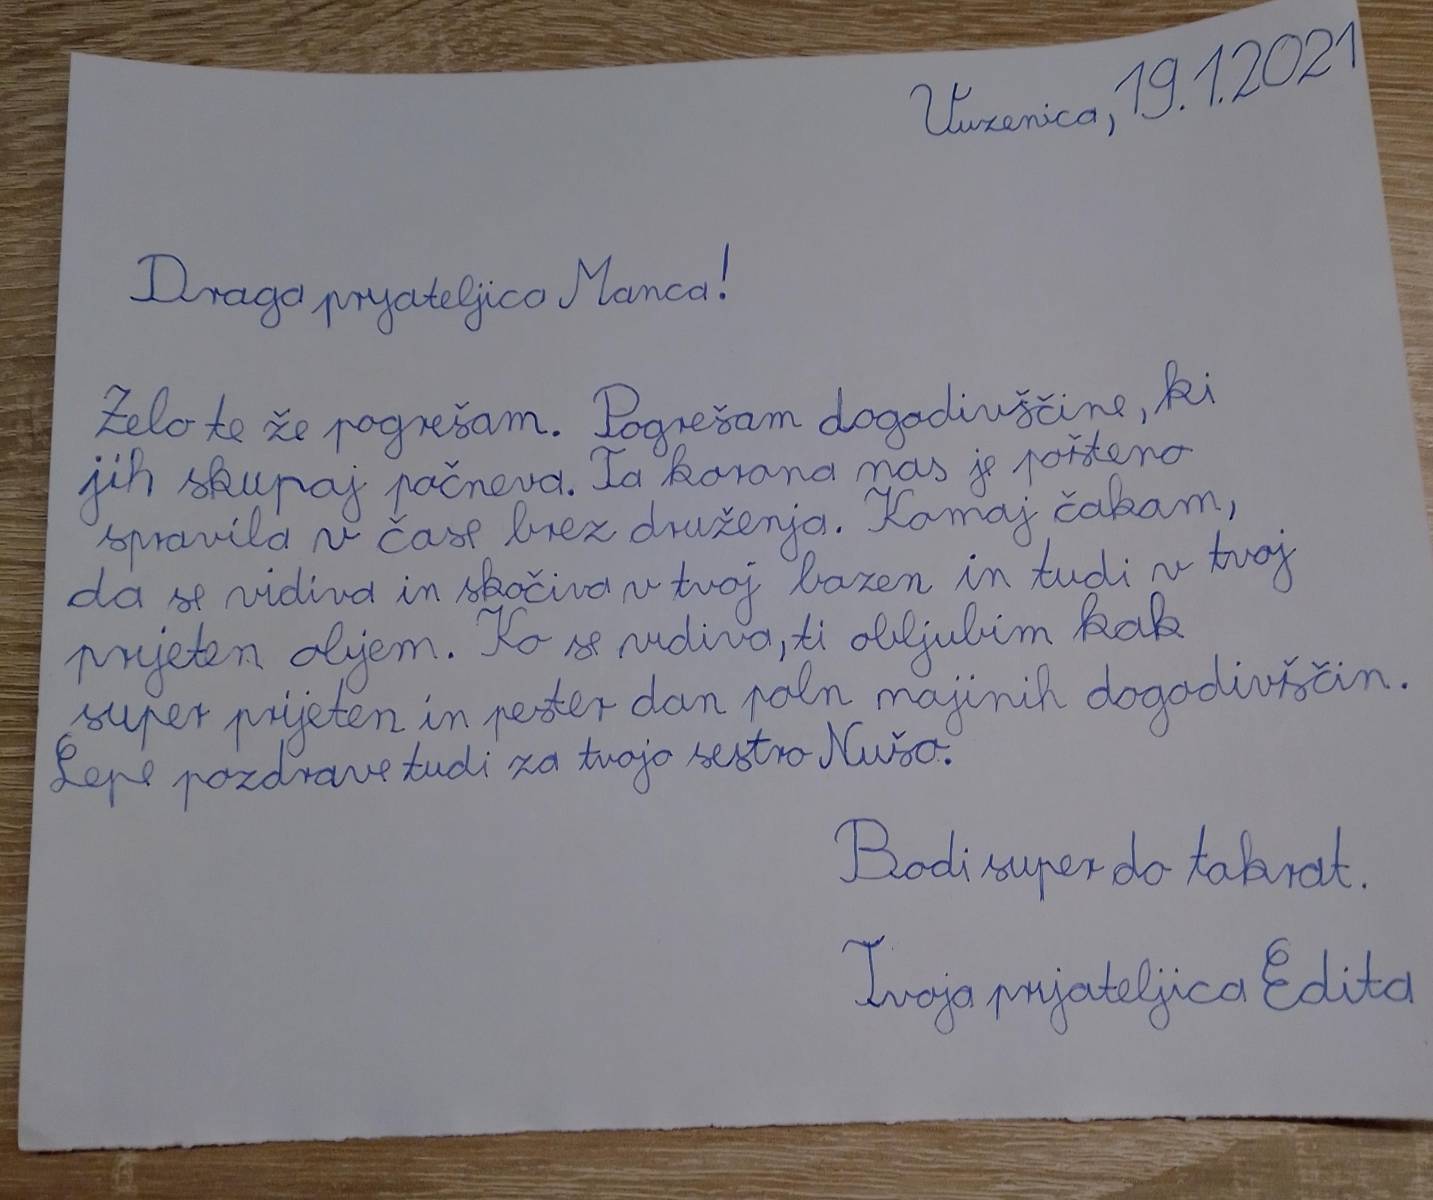 Vuzenica, 19.1.2021
Draga prijateljica Manca!
Zelo te že pogrešam. Pogrešam dogodivščine, ki
jih skupaj počneva. Ta korona nas je pošteno
spravila v čase brez druženja. Komaj čakam,
da se vidiva in skočiva v tvoj bazen in tudi v tvoj
prijeten objem. Ko se vidiva, ti obljubim kak
super prijeten in pester dan poln majinih dogodivščin.
Lepe pozdrave tudi za tvojo sestro Nušo.
Bodi super do takrat.
Tvoja prijateljica Edita